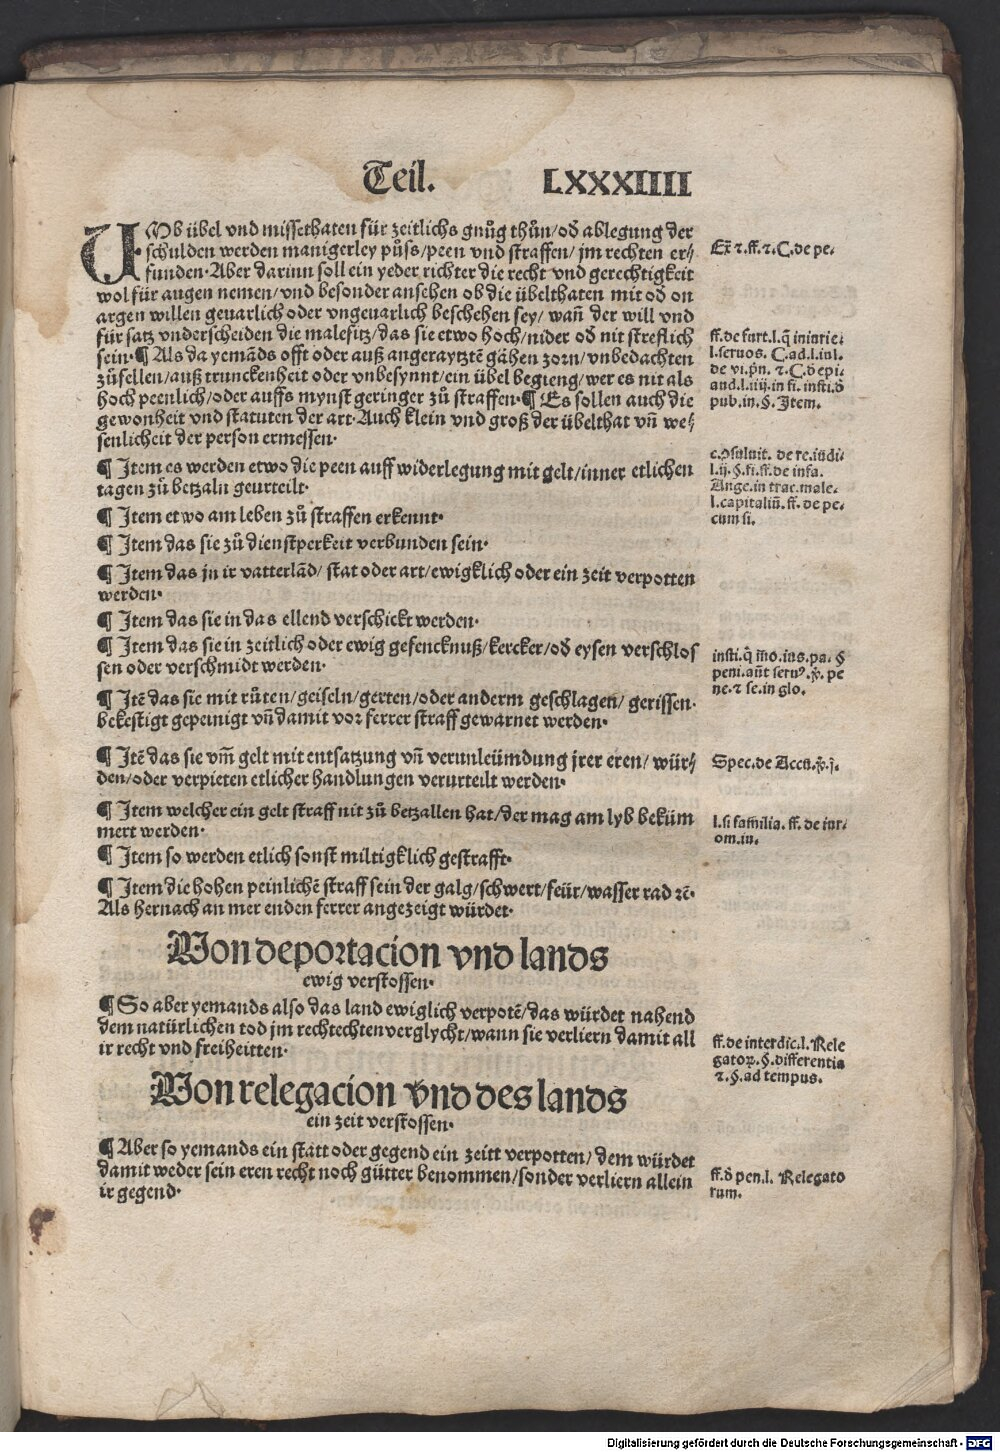 Teil. LXXXIIII
UMb übel vnd missethaten für zeitlichs gnůg thůn/od̄ ablegung der
schulden werden manigerley půss/peen vnd straffen/ jm rechten er⸗
funden· Aber darinn soll ein yeder richter die recht vnd gerechtigkeit
wol für augen nemen/vnd besonder ansehen ob die übelthaten mit od̄ on
argen willen geuarlich oder vngeuarlich beschehen sey/ wañ der will vnd
für satz vnderscheiden die malefitz/das sie etwo hoch/nider od̄ nit streflich
sein·¶ Als da yemāds offt oder auß angerayztē gähen zorn/vnbedachten
zůfellen/auß trunckenheit oder vnbesynnt/ein übel begieng/wer es nit als
hoch peenlich/oder auffs mynst geringer zů straffen·¶ Es sollen auch die
gewonheit vnd statuten der art· Auch klein vnd groß der übelthat vñ we⸗
senlicheit der person ermessen·
¶ Item es werden etwo die peen auff widerlegung mit gelt/inner etlichen
tagen zů betzaln geurteilt·
¶ Item etwo am leben zů straffen erkennt·
¶ Item das sie zů dienstperkeit verbunden sein·
¶ Item das jn ir vatterlād/ stat oder art/ewigklich oder ein zeit verpotten
werden·
¶ Item das sie in das ellend verschickt werden·
¶ Item das sie in zeitlich oder ewig gefencknuß/kercker/od̄ eysen verschlos
sen oder verschmidt werden·
¶ Itē das sie mit růten/geiseln/gerten/oder anderm geschlagen/ gerissen·
bekestigt gepeinigt vñ damit vor ferrer straff gewarnet werden·
¶ Itē das sie vm̄ gelt mit entsatzung vñ verunleümdung jrer eren/ wür⸗
den/oder verpieten etlicher handlungen verurteilt werden·
¶ Item welcher ein gelt straff nit zů betzallen hat/der mag am lyb beküm
mert werden·
¶ Item so werden etlich sonst miltigklich gestrafft·
¶ Item die hohen peinlichē straff sein der galg/schwert/feür/wasser rad ꝛē·
Als hernach an mer enden ferrer angezeigt würdet·
Von deportacion vnd lands
ewig verstossen·
¶ So aber yemands also das land ewiglich verpotē/das würdet nahend
dem natürlichen tod jm rechtechten verglycht/wann sie verliern damit all
ir recht vnd freiheitten·
Von relegacion vnd des lands
ein zeit verstossen·
¶ Aber so yemands ein statt oder gegend ein zeitt verpotten/ dem würdet
damit weder sein eren recht noch gütter benommen/sonder verliern allein
ir gegend·
Ex̄ ⁊.ff.⁊.C.de pe.
ff.de furt.l.q̄ iniurie.
l.seruos. C.ad.l.iul.
de vi.pn̄. ⁊.C.d̄ epi.
and.l.iiij.in fi.insti.d̄
pub.in.§.Item.
de re.iudi.
l.ij.§.fi.ff.de infa.
Ange.in trac.male.
l.capitaliū.ff.de pe.
cum si.
insti.q̄ m̄o.ius.pa.§
peni.
ne.⁊ se.in glo.
Spec.de Accu.
l.si familia. ff. de iur.
om.iu.
ff.de interdic.l.Rele
gatoꝝ.§.differentia
⁊.§.ad tempus.
ff.d̄ pen.l. Relegato
rum.
Digitalisierung gefördert durch die Deutsche Forschungsgemeinschaft - DFG